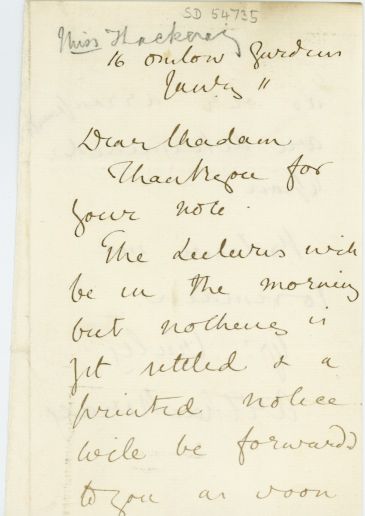 SD 54735
Miss Thackeray
16 Onslow Gardens
Jan'y 11
Dear Madam
Thank you for
your note.
The Lectures will
be in the morning
but nothing is
yet settled & a
printed notice
will be forwarded
to you as soon